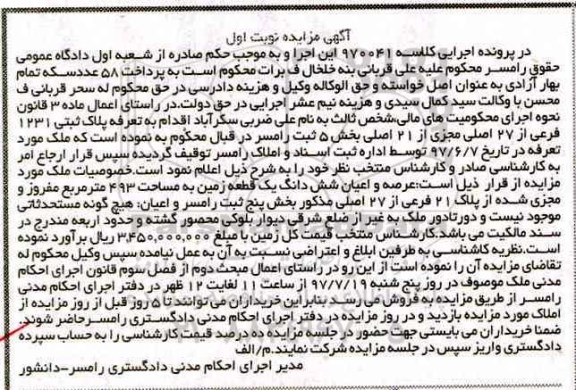 آگهی مزایده نوبت اول
در پرونده اجرایی کلاسه ۹۷۰۰۴۱ این اجرا و به موجب حکم صادره از شعبه اول دادگاه عمومی
حقوق رامسر محکوم علیه علی قربانی بنه خلخال ف برات محکوم است به پرداخت ۵۸ عدد سکه تمام
بهار آزادی به عنوان اصل خواسته و حق الوکاله وکیل و هزینه دادرسی در حق محکوم له سحر قربانی ف
محسن با وکالت سید کمال سیدی و هزینه نیم عشر اجرایی در حق دولت.در راستای اعمال ماده ۳ قانون
نحوه اجرای محکومیت های مالی،شخص ثالث به نام علی ضربی سکرآباد اقدام به تعرفه پلاک ثبتی ۱۲۳۱
فرعی از ۲۷ اصلی مجزی از ۲۱ اصلی بخش ۵ ثبت رامسر در قبال محکوم به نموده است که ملک مورد
تعرفه در تاریخ ۹۷/۶/۷ توسط اداره ثبت اسناد و املاک رامسر توقیف گردیده سپس قرار ارجاع امر
به کارشناسی صادر و کارشناس منتخب نظر خود را به شرح ذیل اعلام نمود است.خصوصیات ملک مورد
مزایده از قرار ذیل است:عرصه و اعیان شش دانگ یک قطعه زمین به مساحت ۴۹۳ مترمربع مفروز و
مجزی شده از پلاک ۲۱ فرعی از ۲۷ اصلی مذکور بخش پنج ثبت رامسر و اعیان: هیچ گونه مستحدثاتی
موجود نیست و دورتادور ملک به غیر از ضلع شرقی دیوار بلوکی محصور گشته و حدود اربعه مندرج در
سند مالکیت می باشد.کارشناس منتخب قیمت کل زمین با مبلغ ۳,۴۵۰,۰۰۰,۰۰۰ ریال برآورد نموده
است.نظریه کارشناسی به طرفین ابلاغ و اعتراضی نسبت به آن به عمل نیامده سپس وکیل محکوم له
تقاضای مزایده آن را نموده است از این رو در راستای اعمال مبحث دوم از فصل سوم قانون اجرای احکام
مدنی ملک موصوف در روز پنج شنبه ۹۷/۷/۱۹ از ساعت ۱۱ لغایت ۱۲ ظهر در دفتر اجرای احکام مدنی
رامسر از طریق مزایده به فروش می رساند. بنابراین خریداران می توانند تا دو روز قبل از روز مزایده از
املاک مورد مزایده بازدید و در روز مزایده در دفتر اجرای احکام مدنی دادگستری رامسر حاضر شوند.
ضمنا خریداران می بایستی جهت حضور در جلسه مزایده ده درصد قیمت کارشناسی را به حساب سپرده
دادگستری واریز سپس در جلسه مزایده شرکت نمایند.م/الف
مدیر اجرای احکام مدنی دادگستری رامسر-دانشور